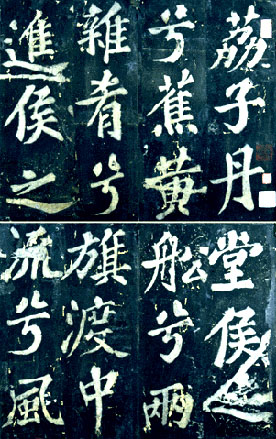 荔子丹
兮蕉黃
雜肴兮
進侯之
堂侯之
舩兮兩
旗渡中
流兮風